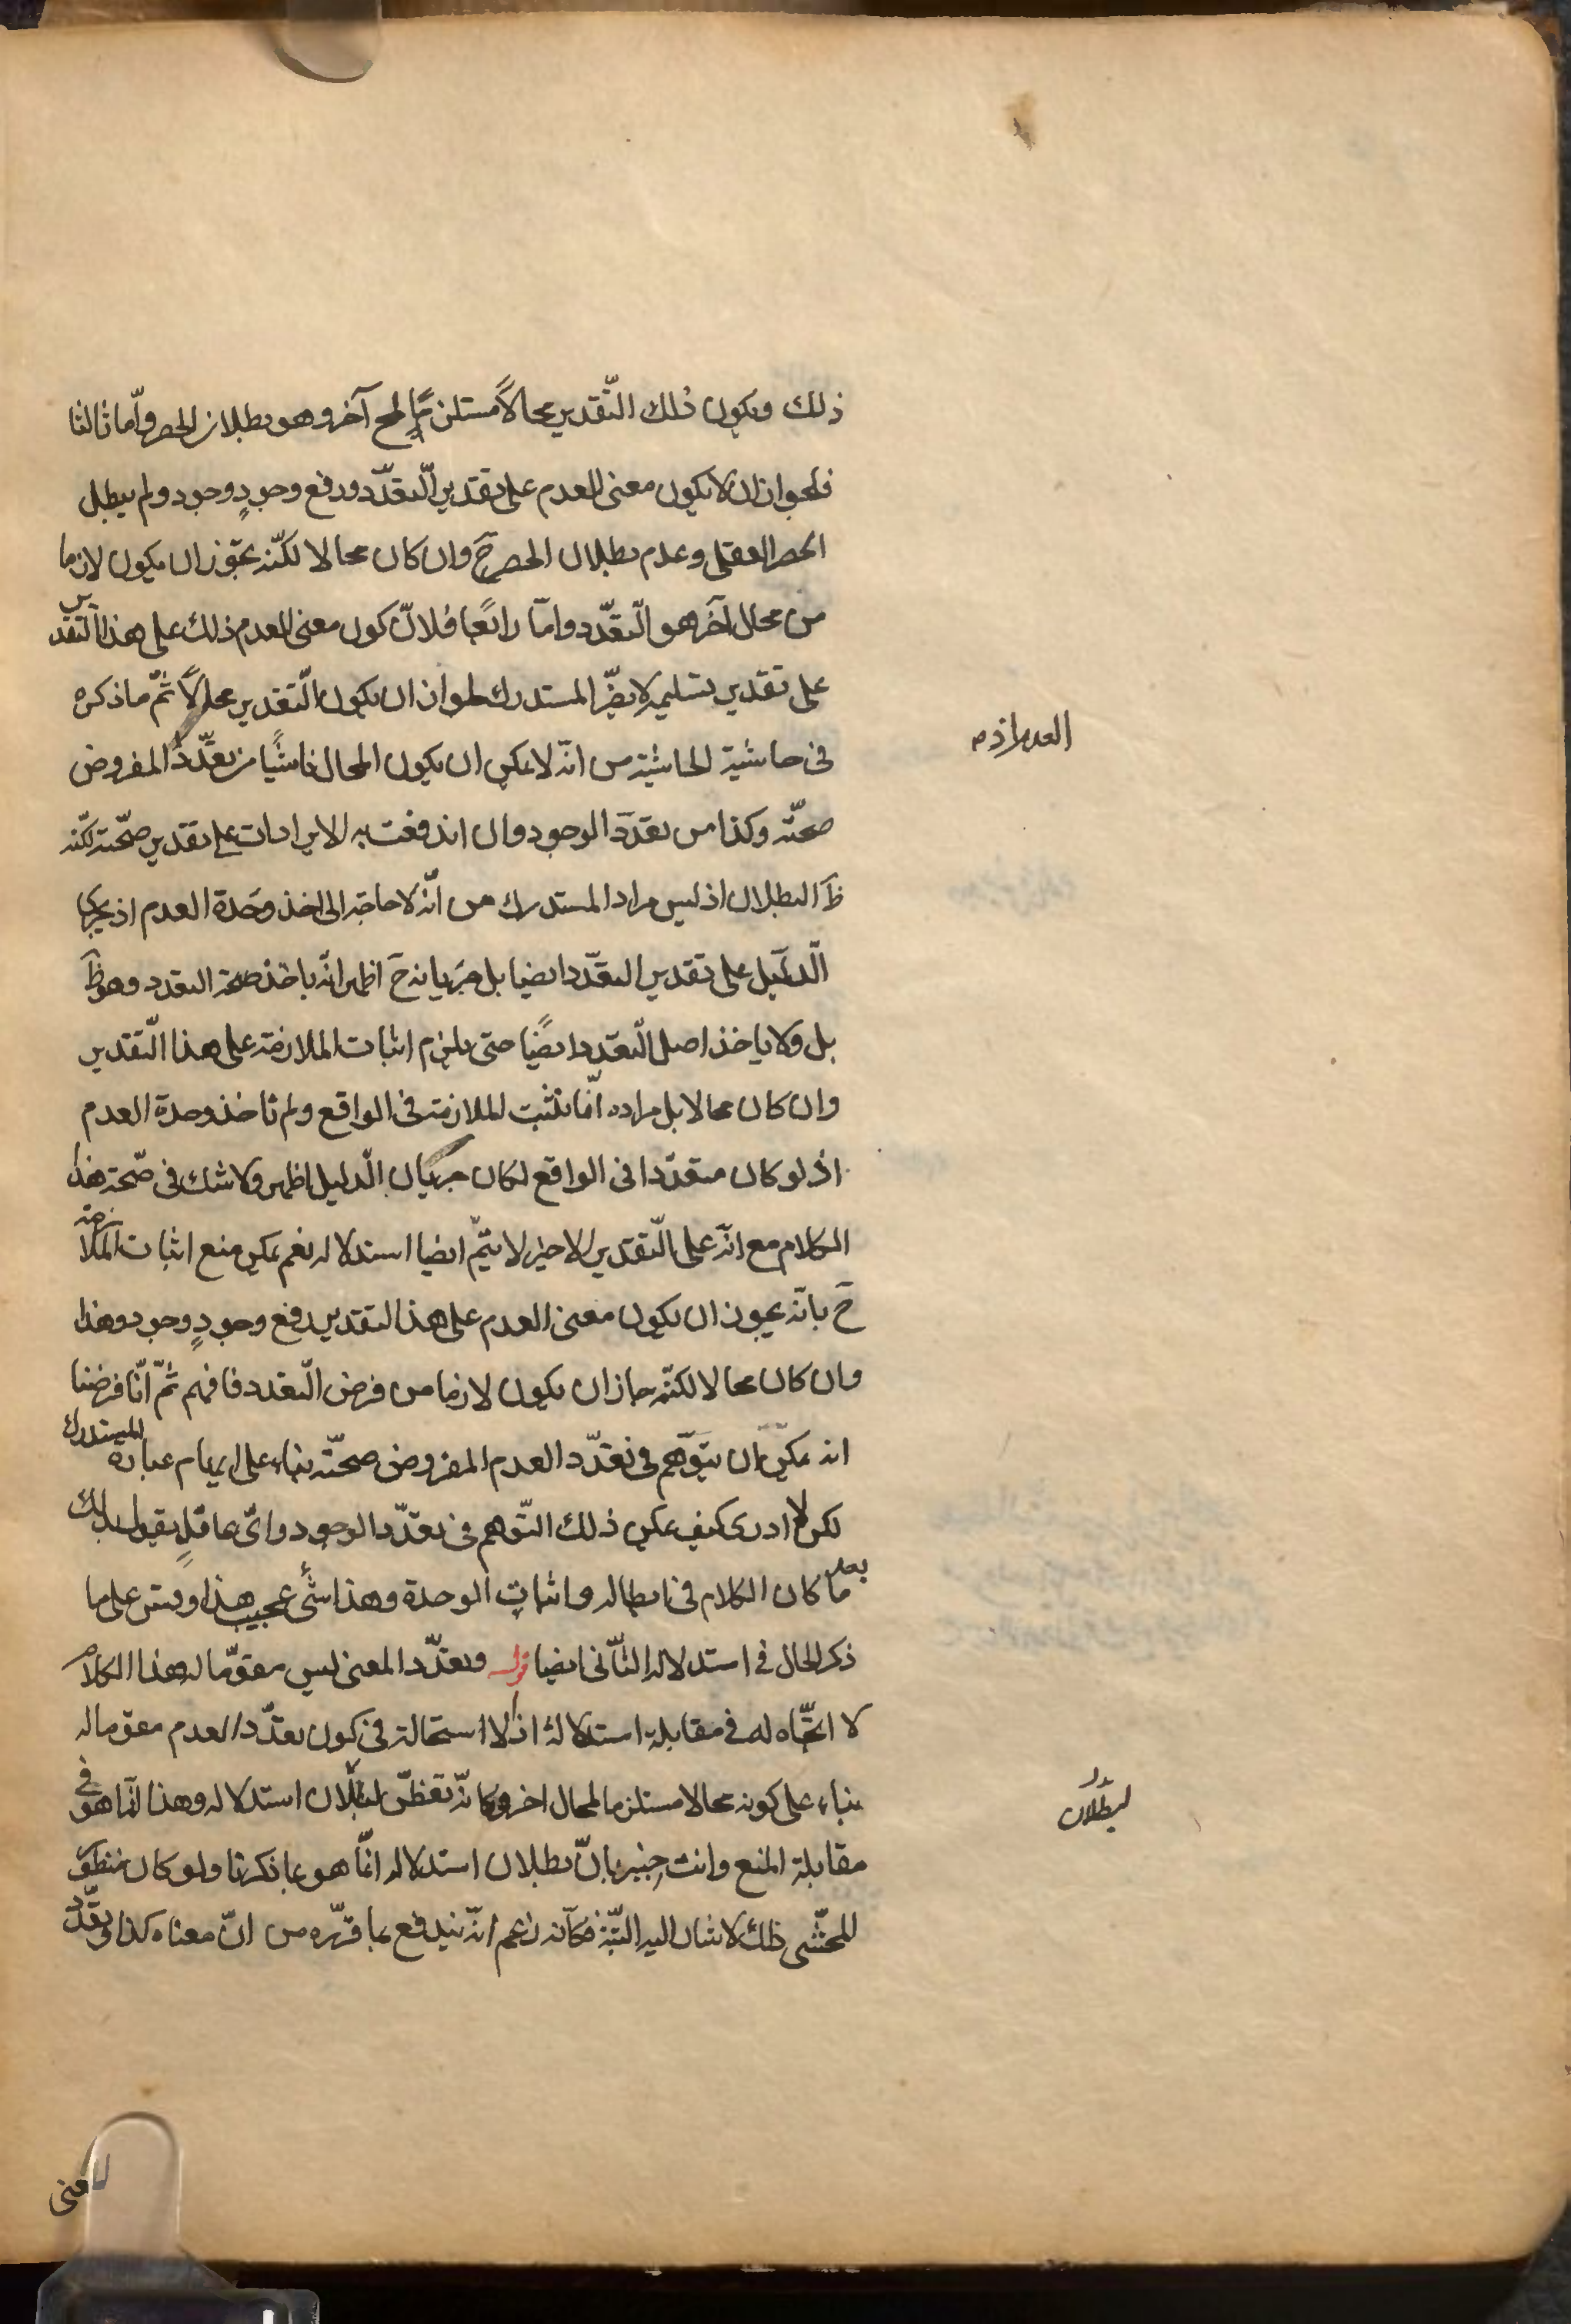 ذلك ويكون ذلك التقدير محالاً مستلزمًا لمح آخر وهو بطلان الحصر وأما ثالثا
فلجواز ان لا يكون معنى العدم على تقدير التعدّد ورفع وجودٍ وجود ولم يبطل
الحصر العقلى وعدم بطلان الحصر ح وان كان محالا لكنّه يجوز ان يكون لازما
من محال آخر هو التعدّد وامّا رابعًا فلانّ كون معنى العدم ذلك على هذا التقدير
على تقدير تسليمه لا يضرّ المستدرك لجواز ان يكون التقدير محالاً ثمّ ما ذكره
فى حاشية الحاشية من انّه لا يمكن ان يكون المحال ناشيًا من تعدّد المفروض
العدم اذ م
صحّته وكذا من تعدّد الوجود وان اندفعت به الايرادات على تقدير صحّته لكنّه
ظ البطلان اذ ليس مراد المستدرك من انّه لا حاجة الى اخذ وحدة العدم اذ يجرى
الدّليل على تقدير التعدّد ايضا بل جريانه ح اظهر انّه ياخذ صحة التعدد وهو ظ
بل ولا ياخذ اصل التعدد ايضًا حتى يلزم اثبات الملازمة على هذا التقدير
وان كان محالا بل مراده انّا نثبت الملازمة فى الواقع ولم ناخذ وحدة العدم
اذ لو كان متعدّدا فى الواقع لكان جريان الدّليل اظهر ولا شك فى صحّة هذا
الكلام مع انّه على التقدير الاخير لا يتمّ ايضا استدلاله نعم يمكن منع اثبات الملازمة
ح بانّه يجوز ان يكون معنى العدم على هذا التقدير رفع وجودٍ وجود وهذا
وان كان محالا لكنّه جاز ان يكون لازما من فرض التعدد فافهم ثمّ انّا فرضنا
انه يمكن ان يتوّهم فى تعدّد العدم المفروض صحّته بناء على ايهام عبارة المستدرك
لكن لا ادرى كيف يمكن ذلك التوّهم فى تعدّد الوجود واىّ عاقل يقول بذلك
بعد ما كان الكلام فى ابطاله واثبات الوحدة وهذا شئ عجيب هذا وقس على ما
ذكر الحال فى استدلاله الثّانى ايضا قوله وتعدّد المعنى ليس مقوّما له هذا الكلام
لا اتّجاه له فى مقابلة استدلاله اذ لا استحالة فى كون تعدّد العدم مقوما له
بناء على كونه محالا مستلزما لمحال اخر وكانّه تفطّن لبطلان استدلاله وهذا انّما هو فى
لبطلان
مقابلة المنع وانت خبير بانّ بطلان استدلاله انّما هو بما ذكرنا ولو كان منظور
للمحشّى ذلك لاشار اليه البتّة فكانّه زعم انّه يندفع بما قرّره من انّ معناه كذا وتعدّد
المعنى